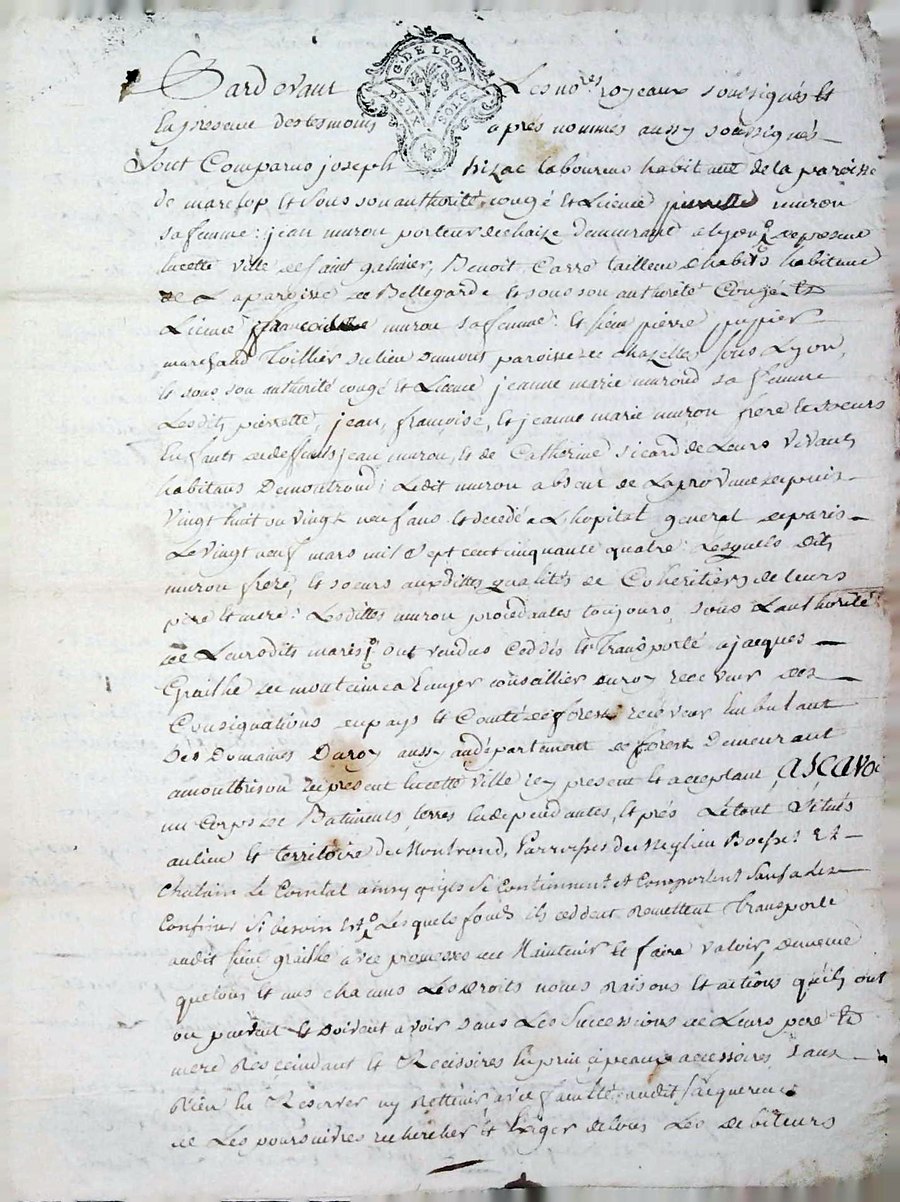 G. DE LYON
DEUX SOLS
Pardevant Les no.res royeaux soussignés et
En presence des tesmoins apres nommés aussy soussignés
Sont Comparus joseph laboureur habitant de la paroisse
de marclop et sous son authorité, congé et Licence pierrette muron
sa femme : jean muron porteur de chaize demeurant a lyon de present
en cette ville de saint galmier, Benoit Carre tailleur d'habits habitant
de La paroisse de Bellegarde et sous son authorité Congé et
Licence françoise muron sa femme : et sieur pierre pupier
marchand Toillier du lieu Dumont paroisse de chazelles sous Lyon,
et sous son authorité congé et Licence jeanne marie murond sa femme
Lesdits pierrette, jean, françoise, et jeanne marie muron frere et soeurs
Enfants de deffunts jean muron, et de Catherine sicard de Leurs Vivants
habitans De montrond ; Ledit muron absent de La province depuis
Vingt huit ou vingt neuf ans et decedé a L'hopital general de paris
Le vingt neuf mars mil sept cent cinquante quatre : Lesquels dits
muron frere, et soeurs auxdittes qualités de Coheritiers de leurs
pere et mere : Lesdittes muron procedantes toujours, sous L'authorité
de Leursdits maris ont vendus Ceddés et Transporté a jacques
Grailhe de montaima Ecuyer conseiller du roy receveur des
Consignations du pays et Comté de forest receveur Embulant
Des Domaines Du roy aussy au département de forest Demeurant
a montbrison de present en cette ville icy present et acceptant, ascavoir
un Corps de Batiments, terres en dependantes, et prés Le tout Situés
au lieu et territoire de Montrond, Parroisses de Meylieu Boisset Et
Chalain Le Comtal ainsy qu'ils se Contiennent et Comportent Sauf a Les
Confiner Si besoin est, Lesquels fonds ils ceddent Remettent Transporte
audit sieur grailhe avec promesse de Maintenir et faire Valoir, De meme
que tous et uns chacuns Les Droits noms Raisons et actions qu'ils ont
ou peuvent et Doivent avoir dans Les Successions de Leurs pere et
mere Rescindant et Recisoires En principeaux accessoires Sans
Rien En Reserver ny Rettenir avec faculté audit sr acquereur
de Les poursuivre rechercher et Exiger de tous Les debiteurs